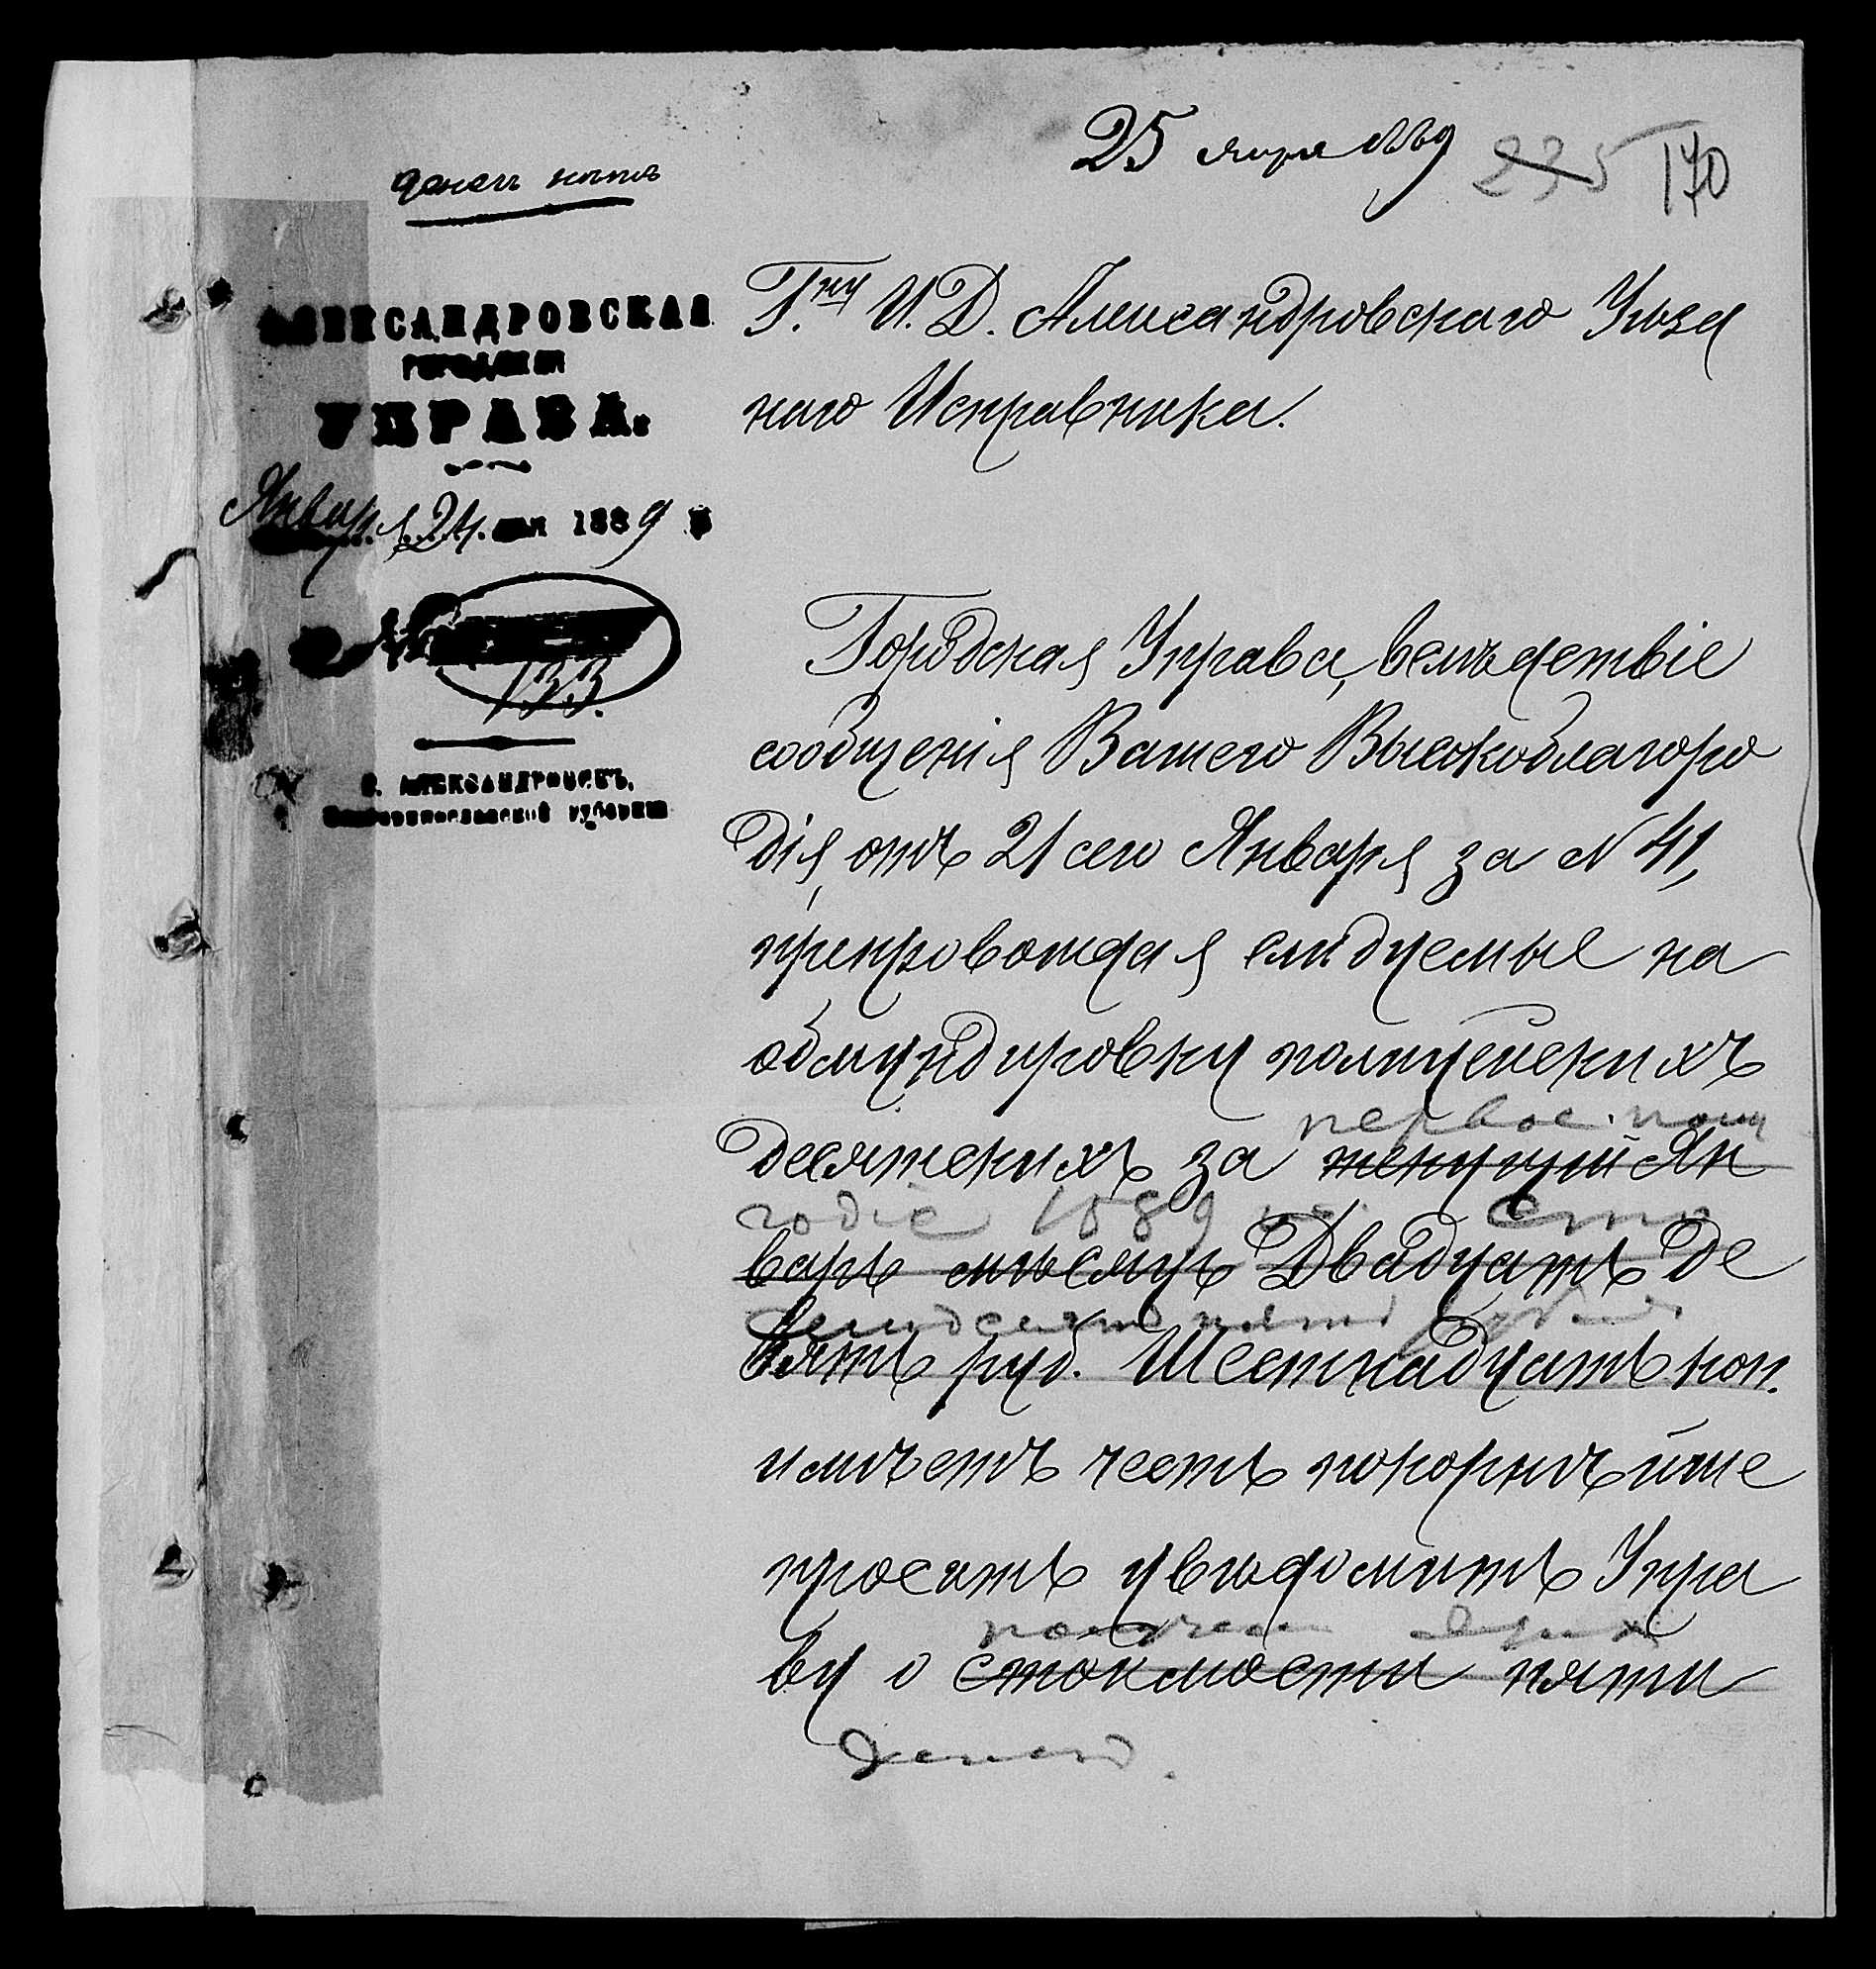 25 янв 1889
235 170
денегъ нѣтъ
АЛЕКСАНДРОВСКАЯ
ГОРОДСКАЯ
УПРАВА.
Января 24 дня 1889 г.
№
133.
Г. АЛЕКСАНДРОВСКЪ,
Екатеринославской губерніи
Г.ну И. Д. Александровскаго Уѣзд
наго Исправника.
Городская Управа, вслѣдствіе
сообщенія Вашего Высокоблагоро
дія, отъ 21 сего Января за N 41,
препровождая слѣдуемые на
обмундировку полицейскихъ
первое полу
десятскихъ за текущій Ян
годіе 1889 г. сто
варь мѣсяцъ Двадцать де
семьдесятъ пять рублей
вять руб. Шестнадцать коп.
имѣетъ честь покорнѣйше
просить увѣдомить Упра
ву о стоимости пяти
денегъ.